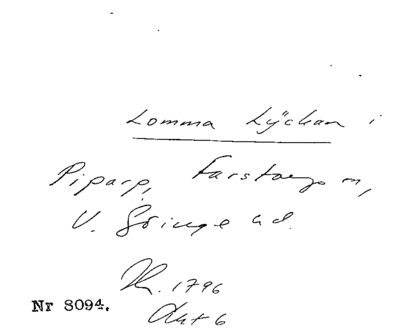 Lomma Lyckan i
Piparp, Farstorps
V. Göinge hd.
Kh. 1796
Akt 6
Nr 8094.